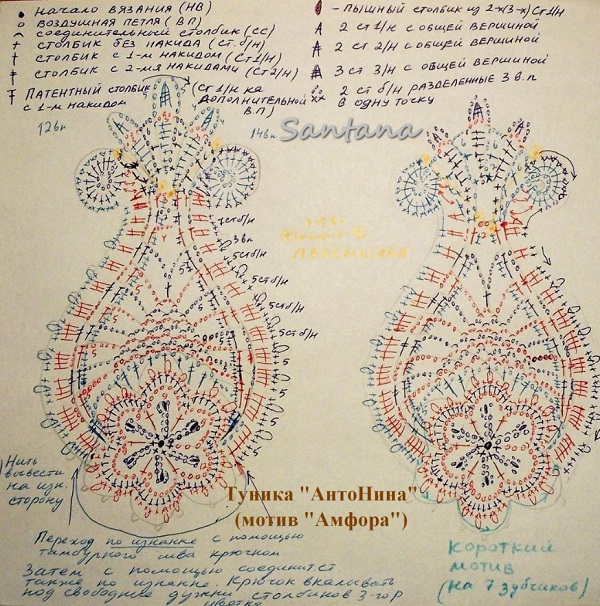 • начало вязания (НВ)
о воздушная петля (ВП)
⌢ соединительный столбик (сс)
+ столбик без накида (ст.б/н)
† столбик с 1-м накидом (Ст1/н)
‡ столбик с 2-мя накидами (Ст2/н)
Патентный столбик (Ст 1/н на
с 1-м накидом дополнительной
В.П)
- пышный столбик из 2-х(3-х)Ст1/н
2 ст 1/н с общей вершиной
2 ст 2/н с общей вершиной
3 ст 3/н с общей вершиной
2 ст б/н разделенные 3 в.п
в одну точку
12вп
14вп
Santana
7стб/н
3вп
5стб/н
5стб/н
5стб/н
5стб/н
5
5
5
5
Нить
вывести
на изн.
сторону
Туника "АнтоНина"
(мотив "Амфора")
Переход по изнанке с помощью
тамбурного шва крючком
Затем с помощью соединит.ст.
также по изнанке. Крючок вкалывать
под свободные дужки столбиков 3-го р
короткий
мотив
(на 7 зубчиков)